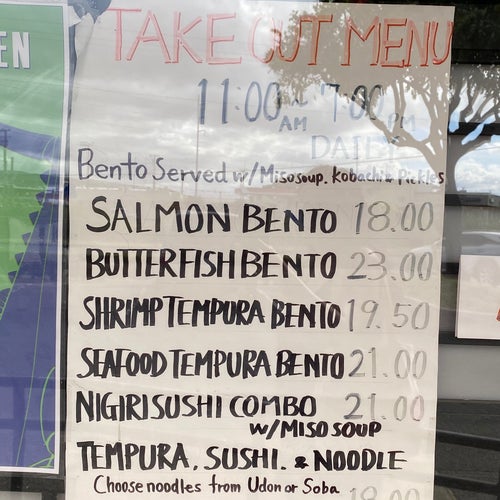 EN
TAKE OUT MENU
11:00 AM ~ 7:00 PM
DAILY
Bento Served w/Miso soup. Kobachi & Pickles
SALMON BENTO 18.00
BUTTERFISH BENTO 23.00
SHRIMP TEMPURA BENTO 19.50
SEAFOOD TEMPURA BENTO 21.00
NIGIRI SUSHI COMBO 21.00
w/MISO SOUP
TEMPURA. SUSHI. & NOODLE
Choose noodles from Udon or Soba